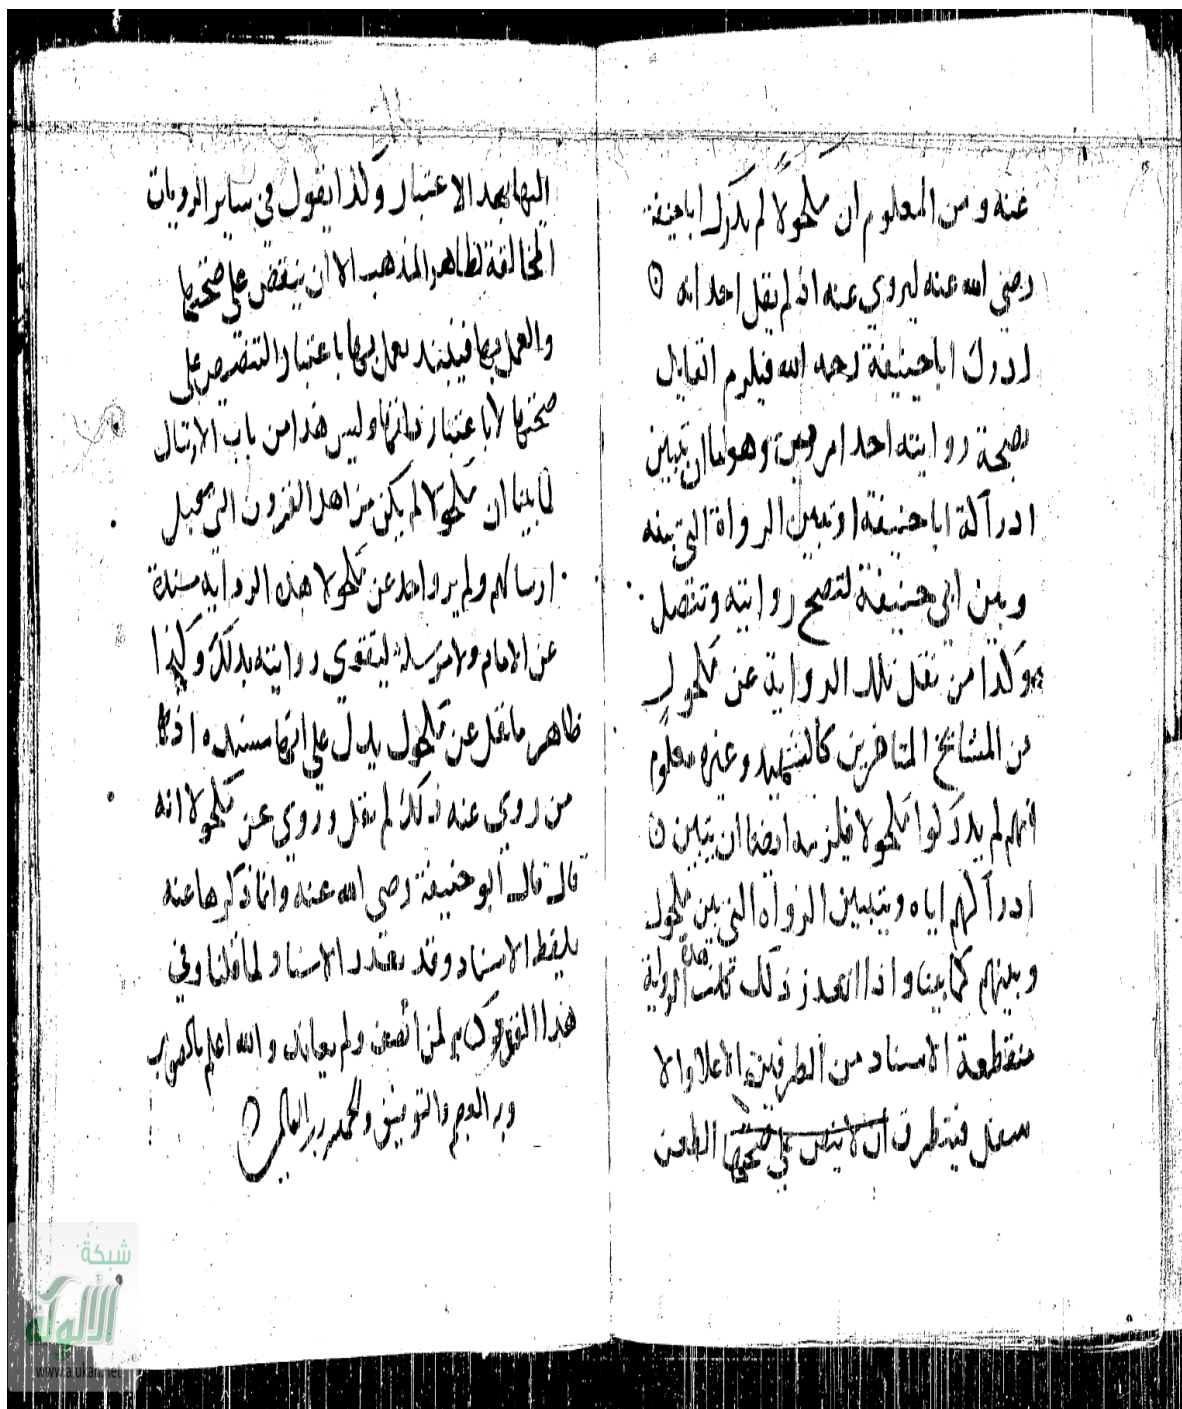 عنه ومن المعلوم ان مكحولاً لم يدرك اباحنيفة
رضي الله عنه ليروي عنه اذ لم يقل احد انه
ادرك اباحنيفة رحمه الله فيلزم القايل
بصحة روايته احد امرين وهو اما ان تبين
ادراكه اباحنيفة او تبين الرواة التي بينه
وبين ابي حنيفة لتصح روايته وتتصل
وكذا من نقل تلك الرواية عن مكحول
من المشايخ المتاخرين كالشهيد وغيره معلوم
انهم لم يدركوا مكحولا فيلزمه ايضا ان يتبين
ادراكهم اياه ويتبين الرواة التي بين مكحول
وبينهم كما بينا واذا تعذر ذلك كانت هذه الرواية
منقطعة الاسناد من الطرفين الاعلا والا
سفل فيتطرق ان لا ينص على صحتها الطعن
اليها بهذا الاعتبار وكذا يقول في ساير الرويات
المخالفة لظاهر المذهب الا ان ينقض على صحتها
والعمل بها فينيذ يعمل بها باعتبار التنصيص على
صحتها لا باعتبار ذاتها وليس هذا من باب الارسال
لما بينا ان مكحولا لم يكن من اهل القرون التي تقبل
ارسالهم ولم يرو احد عن مكحولا هذه الرواية مسندة
عن الامام ولا مرسلة ليتقوى روايته بذلك وكذا
ظاهر ما نقل عن مكحول يدل على انها مسنده اذ
من روي عنه ذلك لم يقل وروي عن مكحولا انه
قال قال ابو حنيفة رضي الله عنه وانما ذكرها عنه
بلفظ الاسناد وقد تعذر الاسناد لما قلنا وفي
هذا القول لمن انصف ولم يعاند والله اعلم بالصواب
وبه العون والتوفيق والحمد لله رب العالمين
شبكة
الألوكة
www.alukah.net